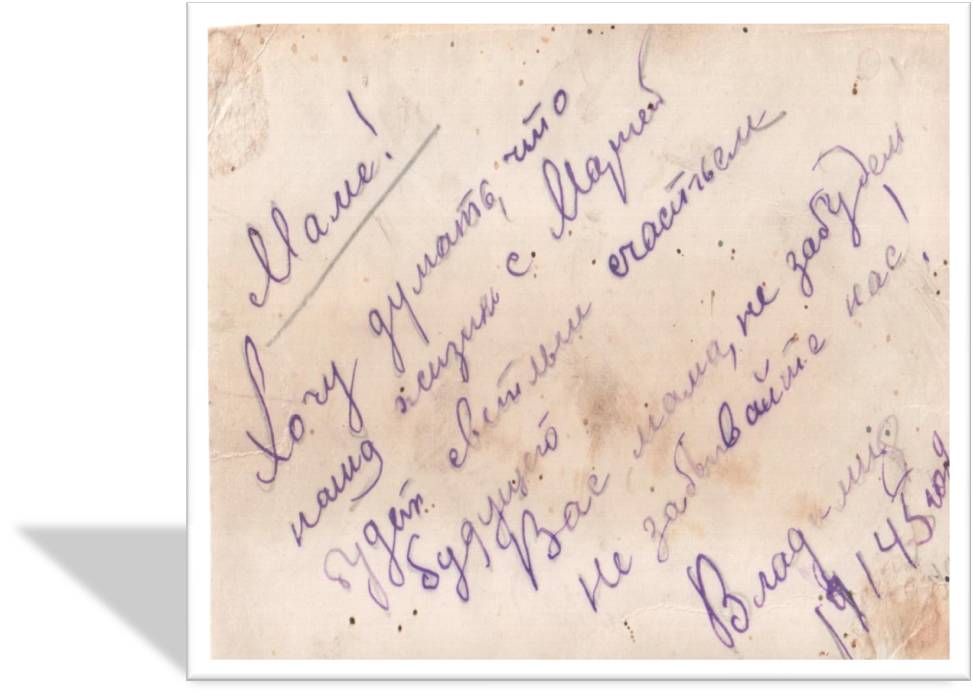 Маме!
Хочу думать, что
наша жизнь с Марией
будет светлым счастьем
будущего
Вас мама, не забудем
Не забывайте нас!
Владимир
1945 год